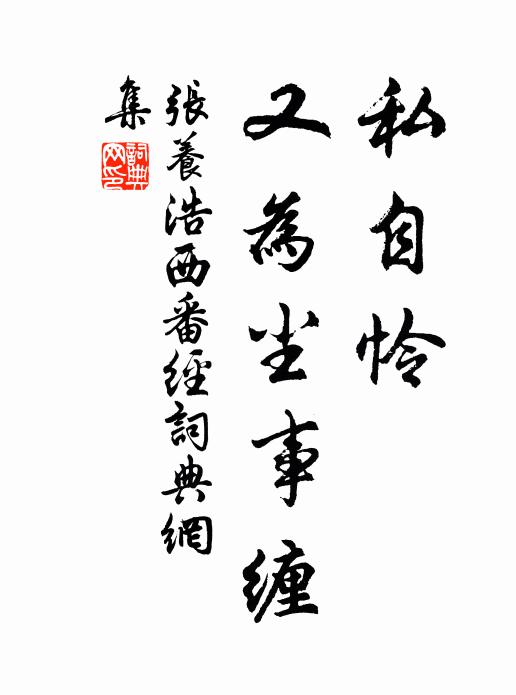 私自怜
又為尘事缠
張養浩西番經詞典網
集
詞典网印